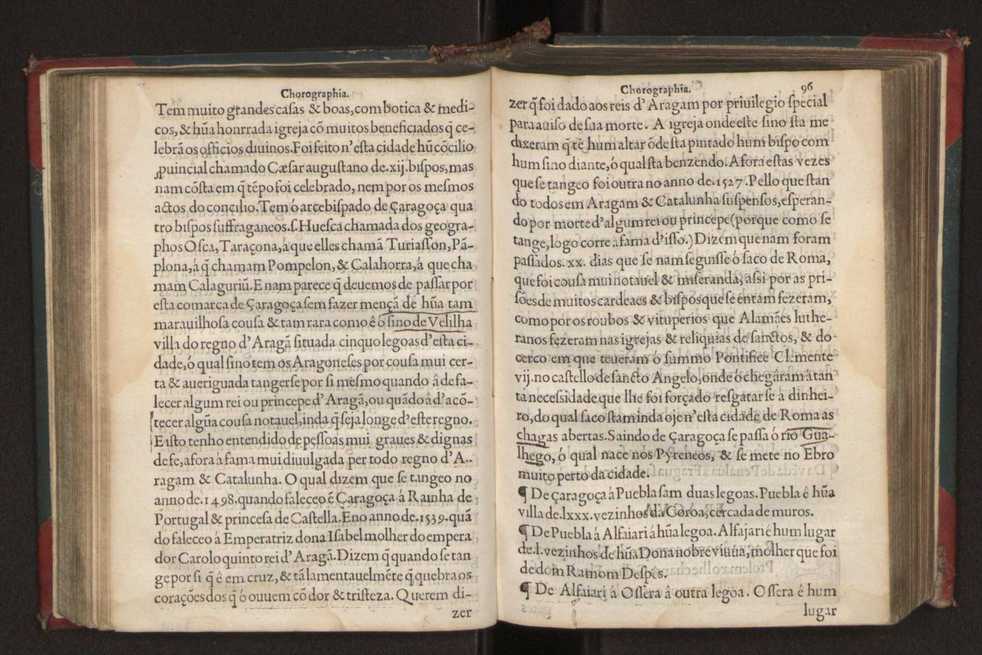 Chorographia.
Tem muito grandes casas & boas, com botica & medi-
cos, & hũa honrrada igreja cõ muitos beneficiados q̃ ce-
lebrã os officios diuinos. Foi feito n'esta cidade hũ cõcilio
ꝓuincial chamado Cæsar augustano de .xij. bispos, mas
nam cõsta em q̃ tẽpo foi celebrado, nem por os mesmos
actos do concilio. Tem o arcebispado de Çaragoça qua
tro bispos suffraganeos .s. Huesca chamada dos geogra-
phos Osca, Taraçona, a que elles chamã Turiasson, Pã-
plona, á q̃ chamam Pompelon, & Calahorra, á que cha
mam Calaguriũ. E nam parece q̃ deuemos de passar por
esta comarca de Çaragoça sem fazer mençã de hũa tam
marauilhosa cousa & tam rara como é ò sino de Velilha
villa do regno d'Aragã situada cinquo legoas d'esta ci-
dade, ò qual sino tem os Aragoneses por cousa mui cer-
ta & aueriguada tangerse por si mesmo quando á de fa-
lecer algum rei ou princepe d'Aragã, ou quãdo á d'acõ-
tecer algũa cousa notauel, inda q̃ seja longe d'este regno.
E isto tenho entendido de pessoas mui graues & dignas
de fe, afora á fama mui diuulgada per todo regno d'A-
ragam & Catalunha. O qual dizem que se tangeo no
anno de .1498. quando faleceo ẽ Çaragoça á Rainha de
Portugal & princesa de Castella. E no anno de .1539. quã
do faleceo á Emperatriz dona Isabel molher do empera
dor Carolo quinto rei d'Aragã. Dizem q̃ quando se tan
ge por si q̃ é em cruz, & tã lamentauelmẽte q̃ quebra os
corações dos q̃ ò ouuem cõ dor & tristeza. Querem di-
zer
Chorographia. 96
zer q̃ foi dado aos reis d'Aragam por priuilegio special
para auiso de sua morte. A igreja onde este sino sta me
dixeram q̃ tẽ hum altar õde sta pintado hum bispo com
hum sino diante, ò qual sta benzendo. Afora estas vezes
que se tangeo foi outra no anno de .1527. Pello que stan
do todos em Aragam & Catalunha suspensos, esperan-
do por morte d'algum rei ou princepe (porque como se
tange, logo corre a fama d'isso.) Dizem que nam foram
passados .xx. dias que se nam seguisse ò saco de Roma,
que foi cousa mui notauel & miseranda, assi por as pri-
sões de muitos cardeaes & bispos que se entam fezeram,
como por os roubos & vituperios que Alamães luthe-
ranos fezeram nas igrejas & reliquias de sanctos, & do
cerco em que teueram ò summo Pontifice Clemente
vij. no castello de sancto Angelo, onde ò chegâram a tan
ta necessidade que lhe foi forçado resgatarse à dinhei-
ro, do qual saco stam inda oje n'esta cidade de Roma as
chagas abertas. Saindo de Çaragoça se passa ò rio Gua-
lhego, ò qual nace nos Pyreneos, & se mete no Ebro
muito perto da cidade.
¶ De Çaragoça à Puebla sam duas legoas. Puebla é hũa
villa de .lxxx. vezinhos d'a Coroa, cercada de muros.
¶ De Puebla à Alfaiari á hũa legoa. Alfajari é hum lugar
de .l. vezinhos de hũa Dona nobre viuua, molher que foi
de dom Ramom Despés.
¶ De Alfaiari à Ossera â outra legoa. Ossera é hum
lugar